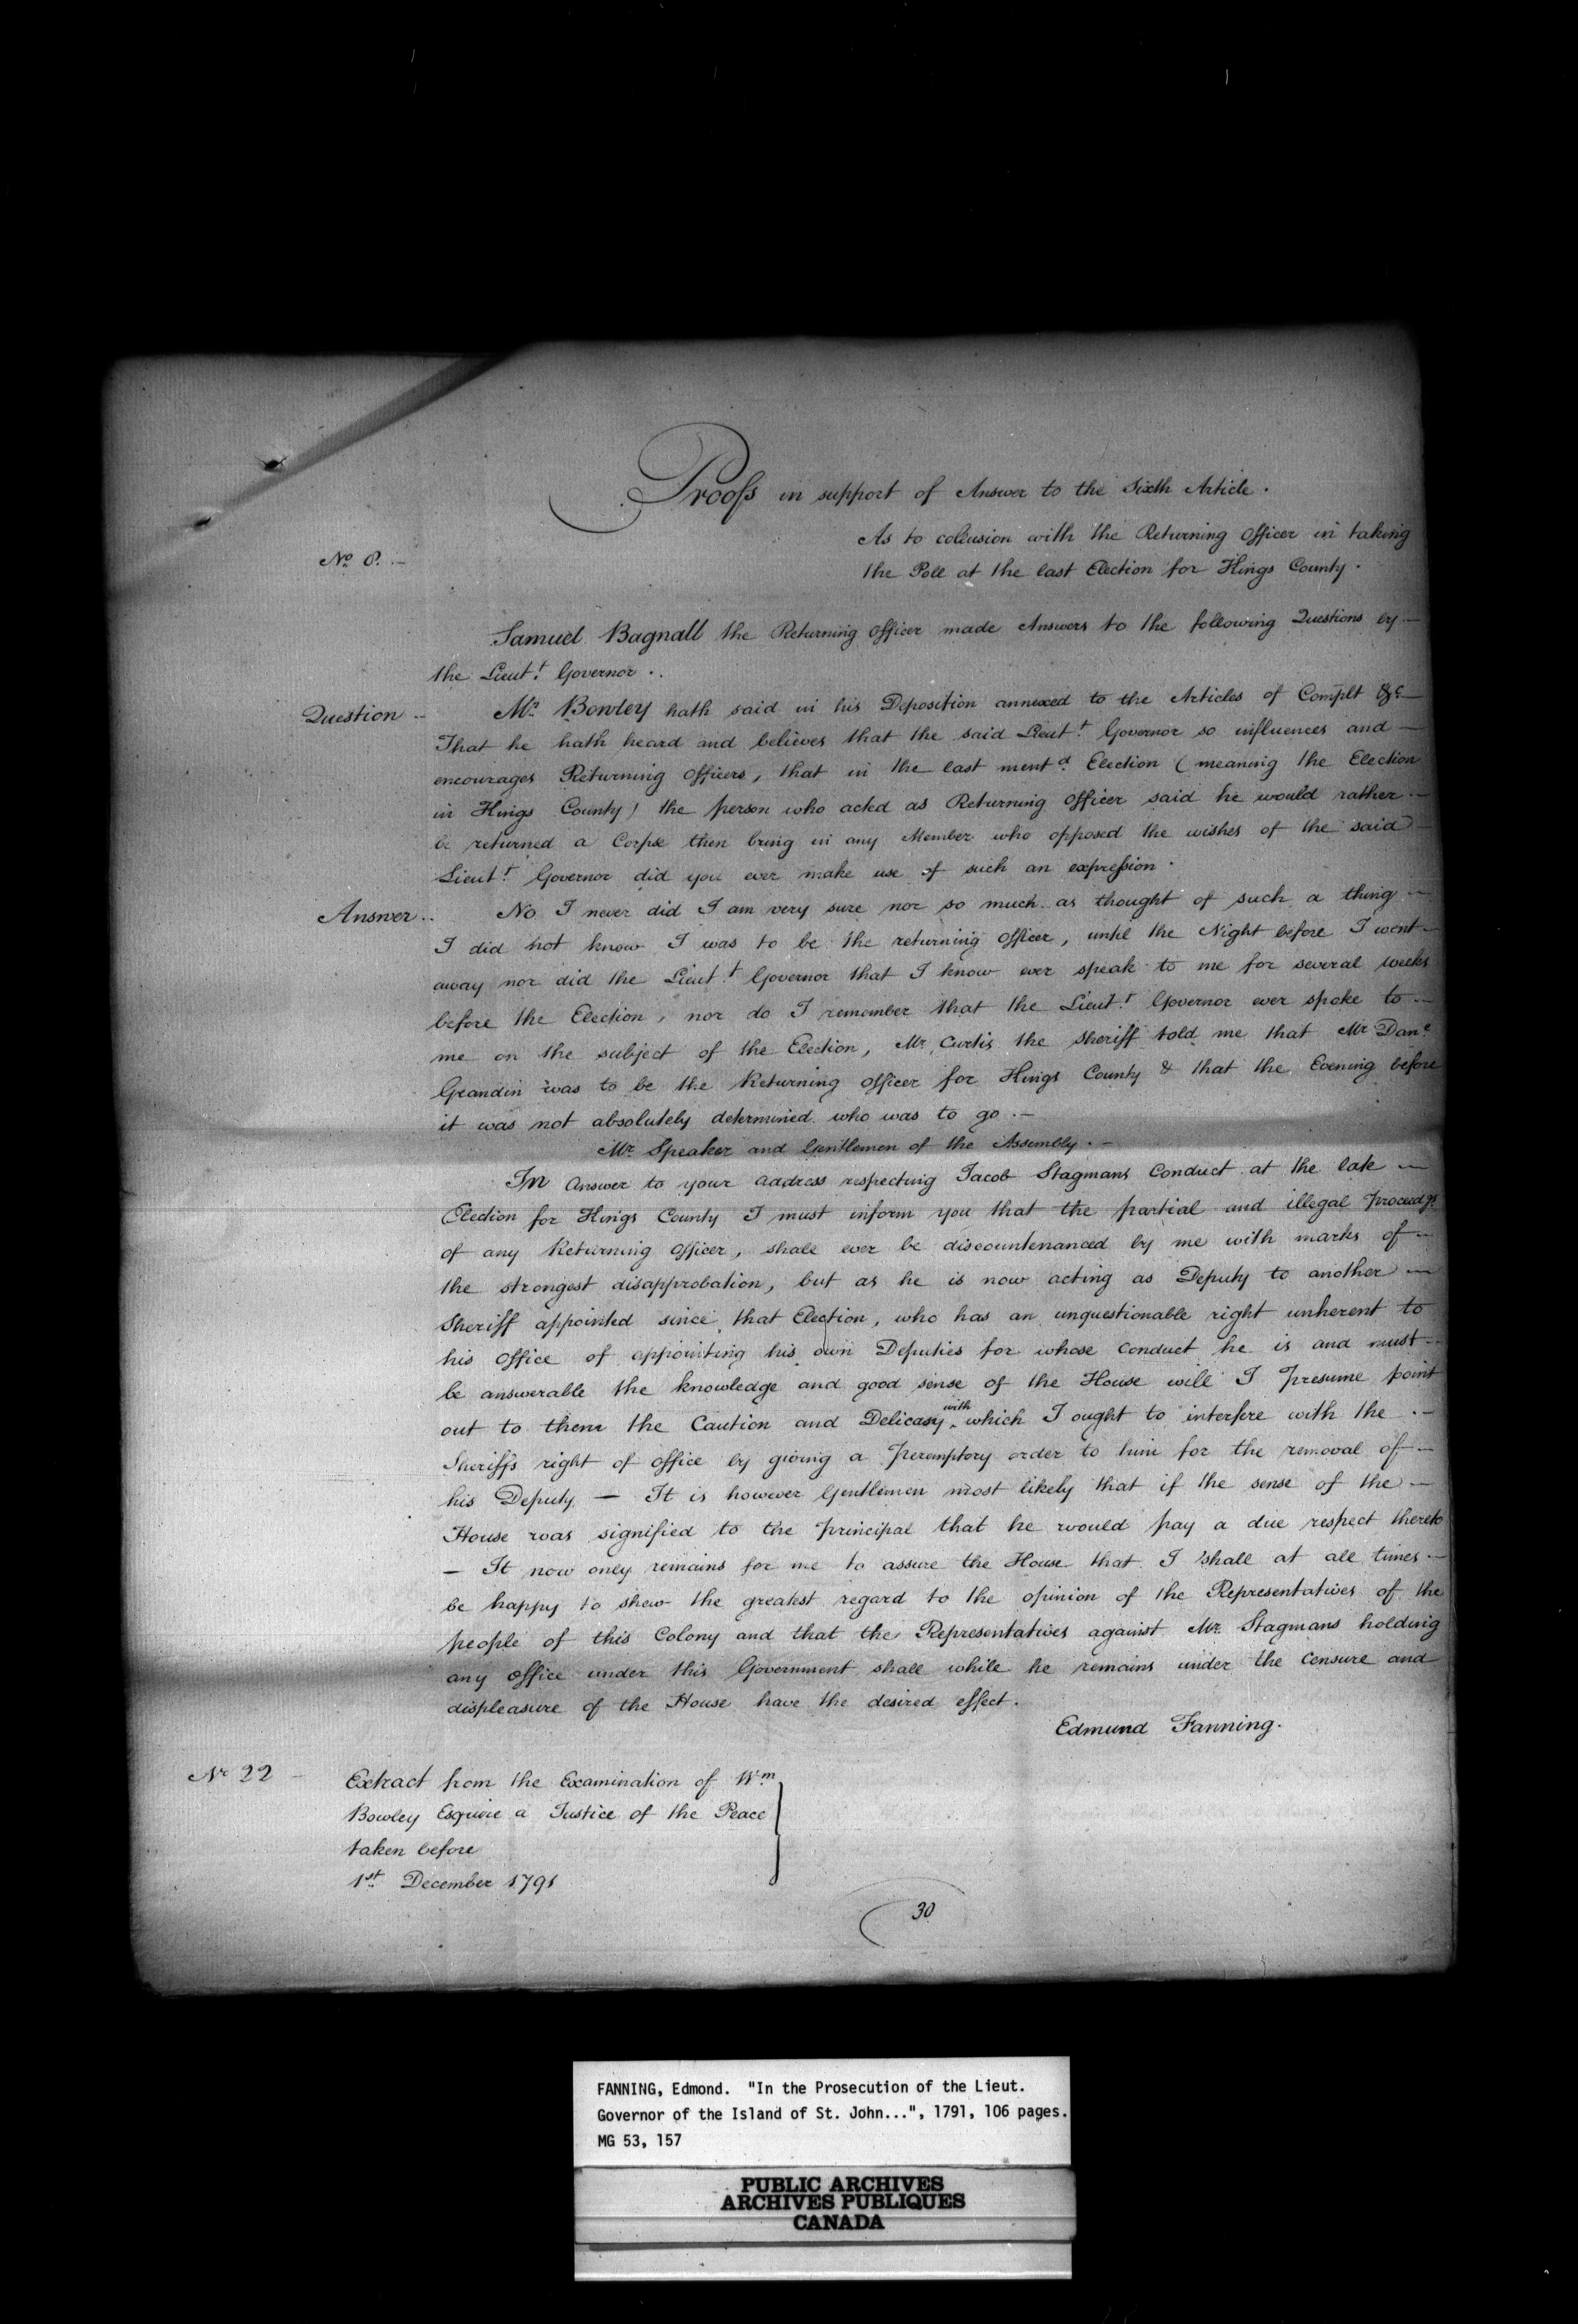 Proofs in support of Answer to the Sixth Article.
As to colusion with the Returning Officer in taking
No. 8. —
the Poll at the last Election for Kings County.
Samuel Bagnall the Returning Officer made Answers to the following Questions by —
the Lieut.t Governor..
Question —
Mr. Bowley hath said in his Deposition annexed to the Articles of Complt &c —
That he hath heard and believes that the said Lieut.t Governor so influences and —
encourages Returning Officers, that in the last mentd. Election (meaning the Election
in Kings County) the person who acted as Returning Officer said he would rather —
be returned a Corpse then bring in any Member who opposed the wishes of the said —
Lieut.t Governor did you ever make use of such an expression.
Answer..
No I never did I am very sure nor so much as thought of such a thing —
I did not know I was to be the returning Officer, until the Night before I went —
away nor did the Lieut.t Governor that I know ever speak to me for several weeks
before the Election, nor do I remember that the Lieut.t Governor ever spoke to —
me on the subject of the Election, Mr. Curtis the Sheriff told me that Mr Dane.
Grandin was to be the Returning Officer for Kings County & that the Evening before
it was not absolutely determined who was to go. —
Mr. Speaker and Gentlemen of the Assembly. —
In Answer to your address respecting Jacob Stagmans Conduct at the late —
Election for Kings County I must inform you that the partial and illegal proceedgs.
of any Returning Officer, shall ever be discountenanced by me with marks of —
the strongest disapprobation, but as he is now acting as Deputy to another —
Sheriff appointed since that Election, who has an unquestionable right unherent to
his Office of appointing his own Deputies for whose Conduct he is and must —
be answerable the knowledge and good sense of the House will I presume point
out to them the Caution and Delicasy with which I ought to interfere with the . —
Sheriffs right of Office by giving a peremptory order to him for the removal of —
his Deputy — It is however Gentlemen most likely that if the sense of the —
House was signified to the principal that he would pay a due respect thereto
— It now only remains for me to assure the House that I shall at all times —
be happy to shew the greatest regard to the opinion of the Representatives of the
people of this Colony and that the Representatives against Mr. Stagmans holding
any office under this Government shall while he remains under the censure and
displeasure of the House have the desired effect.
Edmund Fanning.
Nr 22 —
Extract from the Examination of Wm.
Bowley Esquire a Justice of the Peace
taken before
1st. December 1791
30
FANNING, Edmond. "In the Prosecution of the Lieut.
Governor of the Island of St. John...", 1791, 106 pages.
MG 53, 157
PUBLIC ARCHIVES
ARCHIVES PUBLIQUES
CANADA